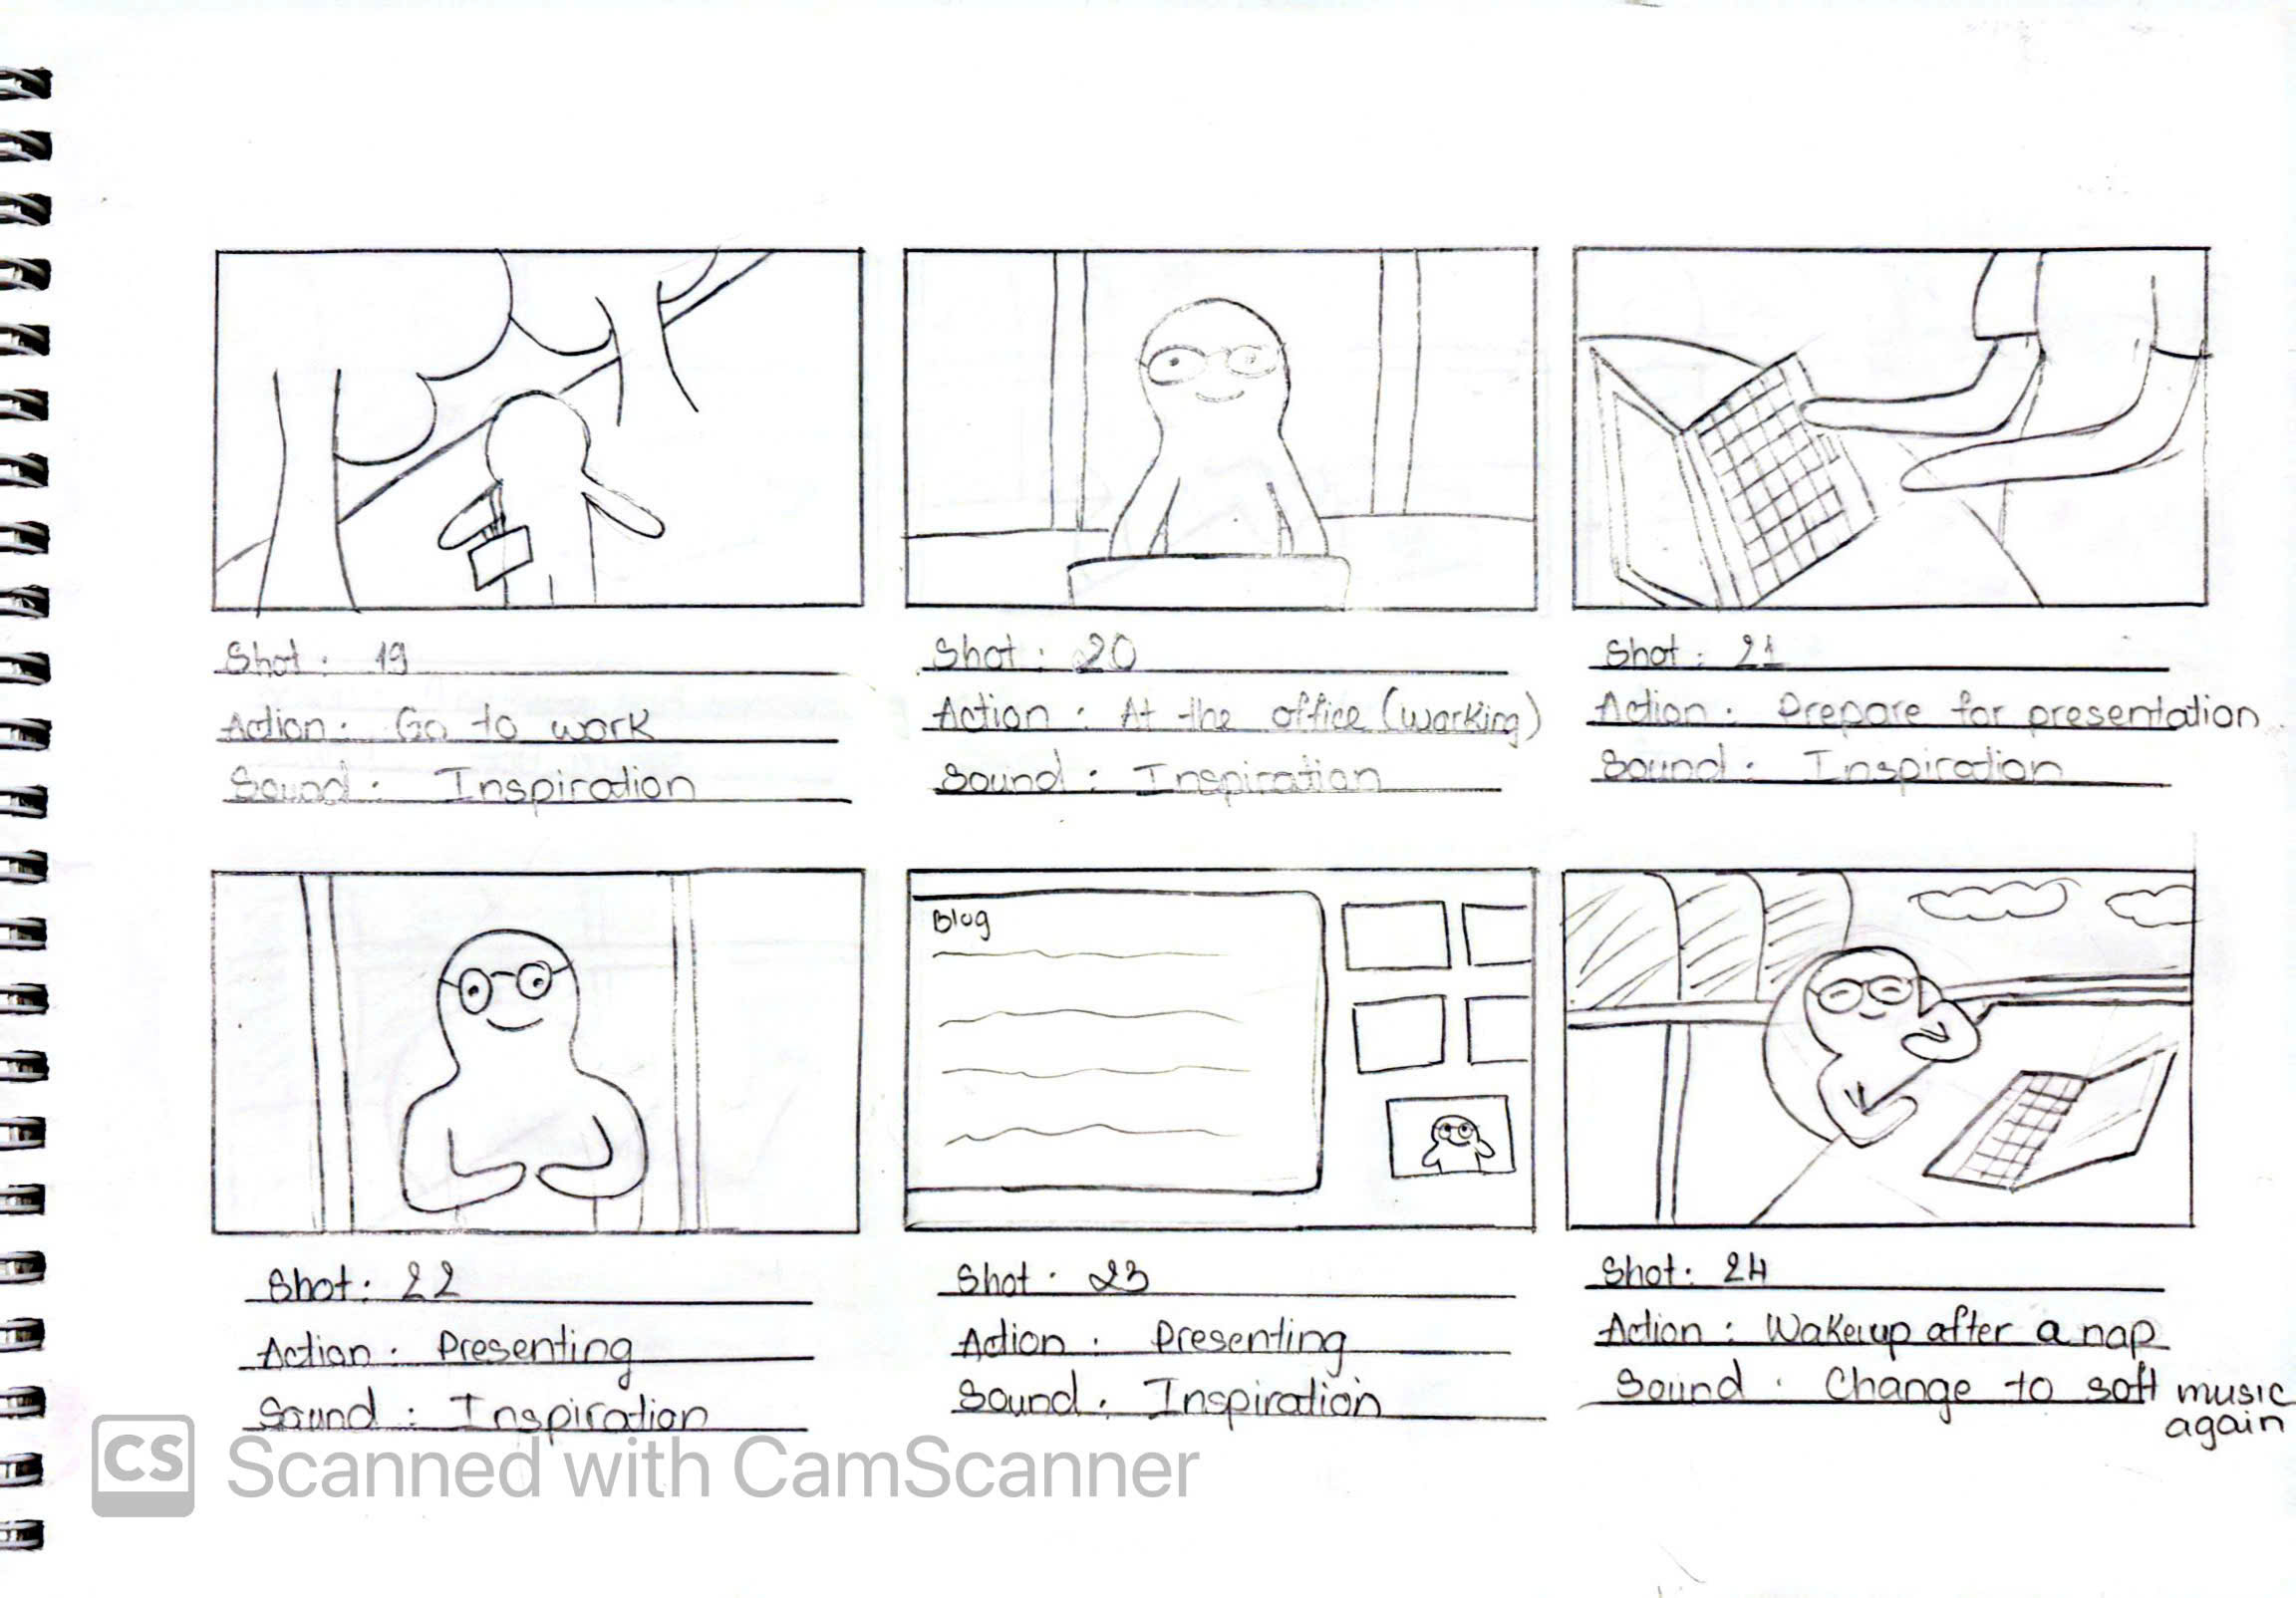 Shot : 19
Action : Go to work
Sound : Inspiration
Shot : 20
Action : At the office (working)
Sound : Inspiration
Shot : 21
Action : Prepare for presentation
Sound : Inspiration
Blog
Shot : 22
Action : Presenting
Sound : Inspiration
Shot : 23
Action : Presenting
Sound : Inspiration
Shot : 24
Action : Wake up after a nap
Sound : Change to soft music
again
CS Scanned with CamScanner